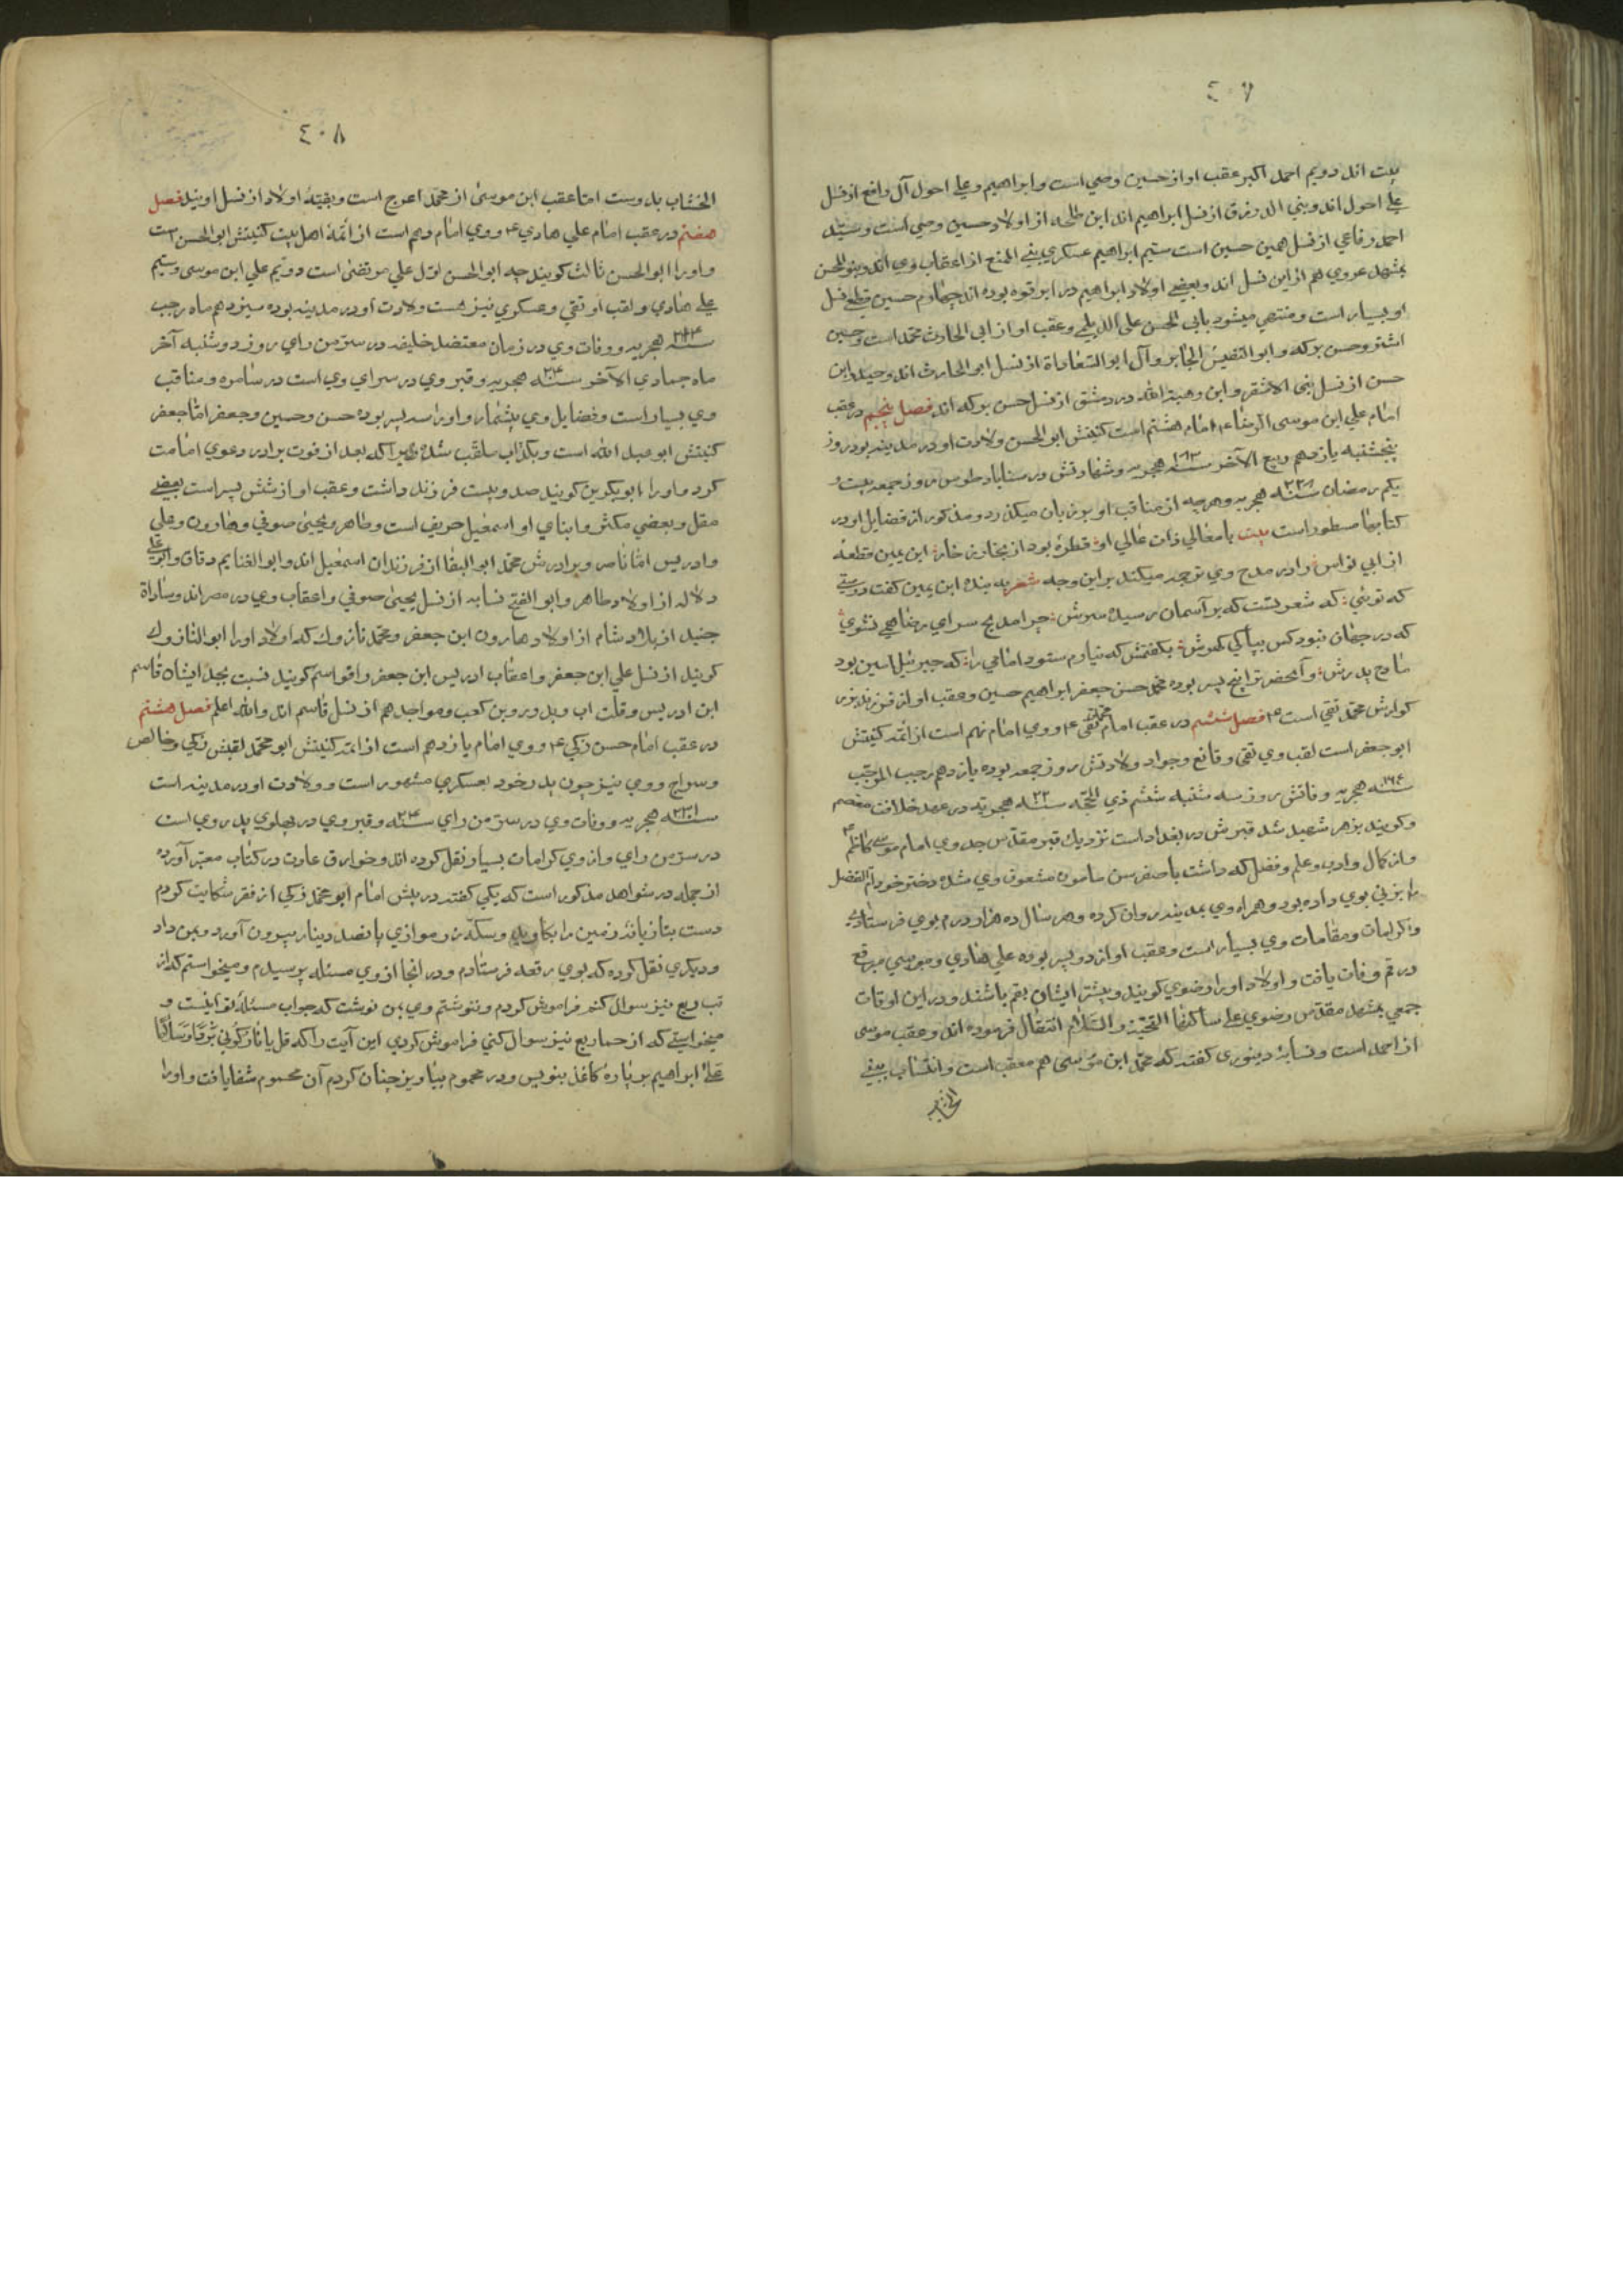 ٤٠٧
بیت اند دویم احمد اکبر عقب او از حسین وصی است و ابراهیم و علی احول آل رافع از نسل
علی احول اند و بنی الدرزق از نسل ابراهیم اند ابن طلحه از اولاد حسین وصی است و سید
احمد رفاعی از نسل همین حسین است سیم ابراهیم عسکری بنی المنع از اعقاب وی اند و بنو المحسن
بمشهد غروی هم از این نسل اند و بعضی اولاد ابراهیم در ابرقوه بوده اند چهارم حسین قطعی نسل
او بسیار است و منتهی میشود بابی الحسن علی الدیلمی و عقب او از ابی الحارث محمد است و حسین
اشتر و حسن برکه و ابو التفیس الجابر و آل ابو السعادات از نسل ابو الحارث اند و حیدر ابن
حسن از نسل بنی الاشقر و ابن وهبة الله در دمشق از نسل حسن برکه اند فصل پنجم در عقب
امام علی ابن موسی الرضا ع امام هشتم است کنیتش ابو الحسن ولادت او در مدینه بود روز
پنجشنبه یازدهم ربیع الآخر سنه هجریه و شهادتش در سناباد طوس روز جمعه بیست و
یکم رمضان سنه هجریه و هر چه از مناقب او بر زبان میگذرد و مذکور از فضایل او در
کتابها مسطور است بیت با معالی ذات عالی او قطرهٔ بود از بخار ابن یمین قطعهٔ
از ابی نواس را در مدح وی ترجمه میکند بر این وجه شعر به بنده ابن یمین گفت دوستی
که توئی که شعر تست که بر آسمان رسیده سرش چرا مدیح سرای رضا همی نشوی
که در جهان نبود کس بپاکی گهرش بگفتمش که نیارم ستود امامی را که جبرئیل امین بود
مادح پدرش و آنحضرت را پنج پسر بوده محمد حسن جعفر ابراهیم حسین و عقب او از فرزند بزر
کوارش محمد تقی است ع فصل ششم در عقب امام محمد تقی ع و وی امام نهم است از ائمه کنیتش
ابو جعفر است لقب وی تقی و قانع و جواد ولادتش روز جمعه بوده یازدهم رجب المرجب
سنه هجریه و فاتش روز سه شنبه ششم ذی الحجه سنه هجریه در عهد خلافت معتصم
و گویند بزهر شهید شد قبرش در بغداد است نزدیک قبر مقدس جد وی امام موسی کاظم ع
و از کمال و ادب و علم و فضل که داشت با صغر سن مأمون مشعوف وی شد دختر خود ام الفضل
را بزنی بوی داده بود و همراه وی بمدینه روان کرده و هر سال ده هزار درم بوی فرستادی
و کرامات و مقامات وی بسیار است و عقب او از دو پسر بوده علی هادی و موسی مبرقع
در قم وفات یافت و اولاد او را رضوی گویند و بیشتر ایشان بقم باشند و در این اوقات
جمعی بمشهد مقدس رضوی علی ساکنها التحیة و السلام انتقال فرموده اند و عقب موسی
از احمد است و نسابهٔ دینوری گفته که محمد ابن موسی هم معقب است و انتساب بنی
الخشاب
٤٠٨
الخشاب بدوست اما عقب ابن موسی از محمد اعرج است و بقیهٔ اولاد از نسل اویند فصل
هفتم در عقب امام علی هادی ع و وی امام دهم است از ائمهٔ اهل بیت کنیتش ابو الحسن است
و او را ابو الحسن ثالث گویند چه ابو الحسن اول علی مرتضی است دویم علی ابن موسی و سیم
علی هادی و لقب او تقی و عسکری نیز هست ولادت او در مدینه بوده سیزدهم ماه رجب
سنه هجریه و وفات وی در زمان معتضد خلیفه در سر من رای روز دوشنبه آخر
ماه جمادی الآخر سنه هجریه و قبر وی در سرای وی است در سامره و مناقب
وی بسیار است و فضایل وی بیشمار و او را سه پسر بوده حسن و حسین و جعفر اما جعفر
کنیتش ابو عبد الله است و بکذاب ملقب شده زیرا که بعد از فوت برادر دعوی امامت
کرد و او را ابو بکرین گویند صد و بیست فرزند داشت و عقب او از شش پسر است بعضی
مقل و بعضی مکثر و ابنای او اسمعیل حریف است و طاهر و یحیی صوفی و هارون و علی
و ادریس اما ناصر و برادرش محمد ابو البقا از فرزندان اسمعیل اند و ابو الغنایم دقاق و ابو علی
دلاله از اولاد طاهر و ابو الفتح نسابه از نسل یحیی صوفی و اعقاب وی در مصر اند و سادات
جنید از بلاد شام از اولاد هارون ابن جعفر و محمد نازوک که اولاد او را ابو النازوک
گویند از نسل علی ابن جعفر و اعقاب ادریس ابن جعفر را قواسم گویند نسبت بجد ایشان قاسم
ابن ادریس و قلت اب و بدر و بن کعب و مواجد هم از نسل قاسم اند والله اعلم فصل هشتم
در عقب امام حسن زکی ع و وی امام یازدهم است از ائمه کنیتش ابو محمد لقبش زکی و خالص
و سراج و وی نیز چون پدر خود بعسکری مشهور است و ولادت او در مدینه است
سنه هجریه و وفات وی در سر من رای سنه و قبر وی در پهلوی پدر وی است
در سر من رای و از وی کرامات بسیار نقل کرده اند و خوارق عادت در کتاب معتبر آورده
از جمله در شواهد مذکور است که یکی گفته در پیش امام ابو محمد زکی از فقر شکایت کردم
دست بتازیانه زمین را بکاوید و سکهٔ زر موازی پانصد دینار بیرون آورد و بمن داد
و دیگری نقل کرده که بوی رقعه فرستادم و در آنجا از وی مسئله پرسیدم و میخواستم که از
تب ربع نیز سوال کنم فراموش کردم و ننوشتم وی بمن نوشت که جواب مسئلهٔ تو اینست و
میخواستی که از حما ربع نیز سوال کنی فراموش کردی این آیت را که قل یا نار کونی بردا و سلاما
علی ابراهیم بر پارهٔ کاغذ بنویس و در محموم بیاویز چنان کردم آن محموم شفا یافت و او را